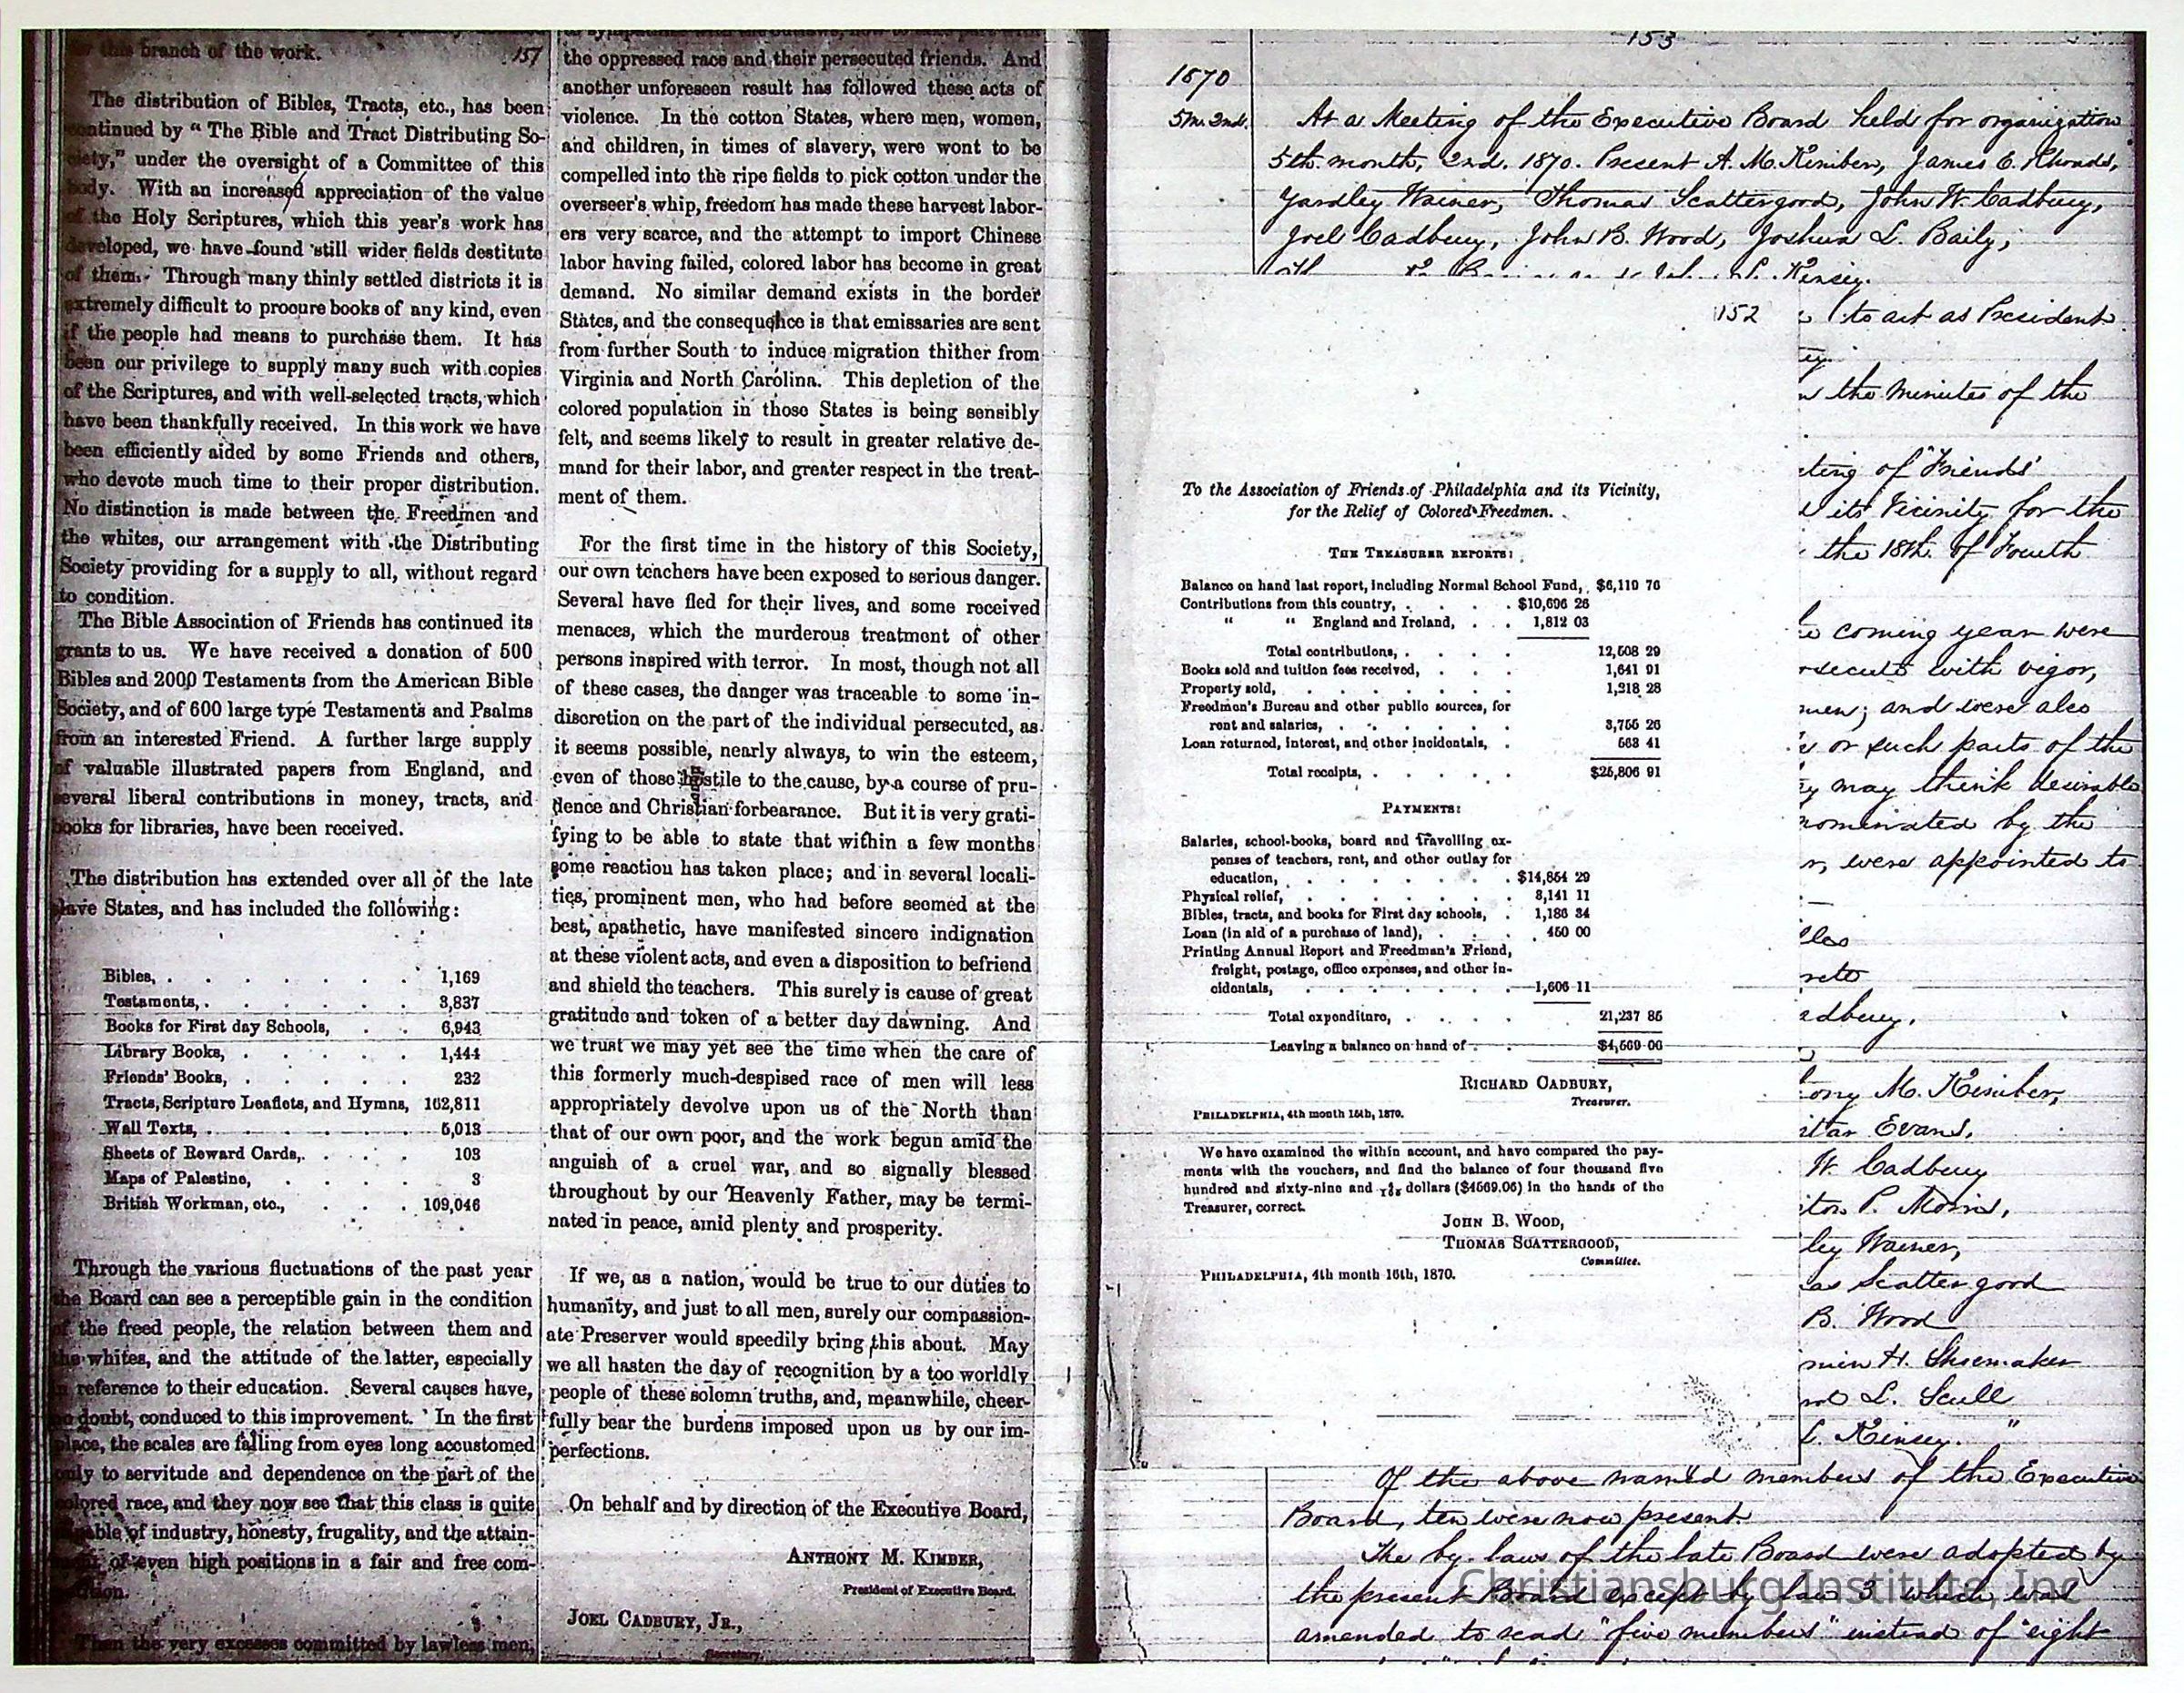 this branch of the work.
157
The distribution of Bibles, Tracts, etc., has been
continued by "The Bible and Tract Distributing So-
ciety," under the oversight of a Committee of this
body. With an increased appreciation of the value
of the Holy Scriptures, which this year's work has
developed, we have found still wider fields destitute
of them. Through many thinly settled districts it is
extremely difficult to procure books of any kind, even
if the people had means to purchase them. It has
been our privilege to supply many such with copies
of the Scriptures, and with well-selected tracts, which
have been thankfully received. In this work we have
been efficiently aided by some Friends and others,
who devote much time to their proper distribution.
No distinction is made between the Freedmen and
the whites, our arrangement with the Distributing
Society providing for a supply to all, without regard
to condition.
The Bible Association of Friends has continued its
grants to us. We have received a donation of 500
Bibles and 2000 Testaments from the American Bible
Society, and of 600 large type Testaments and Psalms
from an interested Friend. A further large supply
of valuable illustrated papers from England, and
several liberal contributions in money, tracts, and
books for libraries, have been received.
The distribution has extended over all of the late
slave States, and has included the following:
Bibles, . . . . . . 1,169
Testaments, . . . . . . 3,837
Books for First day Schools, . . 6,943
Library Books, . . . . . 1,444
Friends' Books, . . . . . 232
Tracts, Scripture Leaflets, and Hymns, 162,811
Wall Texts, . . . . . . 5,013
Sheets of Reward Cards, . . . . 103
Maps of Palestine, . . . . 3
British Workman, etc., . . . 109,046
Through the various fluctuations of the past year
the Board can see a perceptible gain in the condition
of the freed people, the relation between them and
the whites, and the attitude of the latter, especially
in reference to their education. Several causes have,
no doubt, conduced to this improvement. In the first
place, the scales are falling from eyes long accustomed
only to servitude and dependence on the part of the
colored race, and they now see that this class is quite
capable of industry, honesty, frugality, and the attain-
ment of even high positions in a fair and free com-
Then the very excesses committed by lawless men,
the oppressed race and their persecuted friends. And
another unforeseen result has followed these acts of
violence. In the cotton States, where men, women,
and children, in times of slavery, were wont to be
compelled into the ripe fields to pick cotton under the
overseer's whip, freedom has made these harvest labor-
ers very scarce, and the attempt to import Chinese
labor having failed, colored labor has become in great
demand. No similar demand exists in the border
States, and the consequence is that emissaries are sent
from further South to induce migration thither from
Virginia and North Carolina. This depletion of the
colored population in those States is being sensibly
felt, and seems likely to result in greater relative de-
mand for their labor, and greater respect in the treat-
ment of them.
For the first time in the history of this Society,
our own teachers have been exposed to serious danger.
Several have fled for their lives, and some received
menaces, which the murderous treatment of other
persons inspired with terror. In most, though not all
of these cases, the danger was traceable to some in-
discretion on the part of the individual persecuted, as
it seems possible, nearly always, to win the esteem,
even of those hostile to the cause, by a course of pru-
dence and Christian forbearance. But it is very grati-
fying to be able to state that within a few months
some reaction has taken place; and in several locali-
ties, prominent men, who had before seemed at the
best, apathetic, have manifested sincere indignation
at these violent acts, and even a disposition to befriend
and shield the teachers. This surely is cause of great
gratitude and token of a better day dawning. And
we trust we may yet see the time when the care of
this formerly much-despised race of men will less
appropriately devolve upon us of the North than
that of our own poor, and the work begun amid the
anguish of a cruel war, and so signally blessed
throughout by our Heavenly Father, may be termi-
nated in peace, amid plenty and prosperity.
If we, as a nation, would be true to our duties to
humanity, and just to all men, surely our compassion-
ate Preserver would speedily bring this about. May
we all hasten the day of recognition by a too worldly
people of these solemn truths, and, meanwhile, cheer-
fully bear the burdens imposed upon us by our im-
perfections.
On behalf and by direction of the Executive Board,
ANTHONY M. KIMBER,
President of Executive Board.
JOEL CADBURY, JR.,
Secretary.
153
1870
5 m. 2nd.
At a Meeting of the Executive Board held for organization
5th month, 2nd. 1870. Present A. M. Kimber, James E. Rhoads,
Yardley Warner, Thomas Scattergood, John W. Cadbury,
Joel Cadbury, John B. Wood, Joshua L. Baily,
Kinsey.
152
to act as President
the minutes of the
ting of Friends'
its Vicinity for the
the 18th. of Fourth
coming year were
rsecute with vigor,
men; and were also
or such parts of the
may think desirable
nominated by the
r, were appointed to
adbury.
ony M. Kimber,
Evans,
W. Cadbury
ton P. Morris,
ley Warner,
as Scattergood
B. Wood
min H. Shoemaker
L. Scull
Kinsey. "
To the Association of Friends of Philadelphia and its Vicinity,
for the Relief of Colored Freedmen.
THE TREASURER REPORTS:
Balance on hand last report, including Normal School Fund, $6,119 76
Contributions from this country, . . . . $10,696 26
" " England and Ireland, . . . 1,812 03
Total contributions, . . . . 12,508 29
Books sold and tuition fees received, . . . 1,641 91
Property sold, . . . . . . 1,218 28
Freedmen's Bureau and other public sources, for
rent and salaries, . . . . . 3,755 26
Loan returned, interest, and other incidentals, . 563 41
Total receipts, . . . . . $25,806 91
PAYMENTS:
Salaries, school-books, board and travelling ex-
penses of teachers, rent, and other outlay for
education, . . . . . . . $14,854 29
Physical relief, . . . . . . 3,141 11
Bibles, tracts, and books for First day schools, . 1,186 34
Loan (in aid of a purchase of land), . . . 450 00
Printing Annual Report and Freedman's Friend,
freight, postage, office expenses, and other in-
cidentals, . . . . . . . 1,606 11
Total expenditure, . . . . 21,237 85
Leaving a balance on hand of . . $4,569 06
RICHARD CADBURY,
Treasurer.
PHILADELPHIA, 4th month 15th, 1870.
We have examined the within account, and have compared the pay-
ments with the vouchers, and find the balance of four thousand five
hundred and sixty-nine and dollars ($4569.06) in the hands of the
Treasurer, correct.
JOHN B. WOOD,
THOMAS SCATTERGOOD,
Committee.
PHILADELPHIA, 4th month 16th, 1870.
Of the above named members of the Executive
Board, ten were now present.
The by-laws of the late Board were adopted by
the present Board except by law 3 which was
amended to read "five members" instead of "eight
Christiansburg Institute, Inc